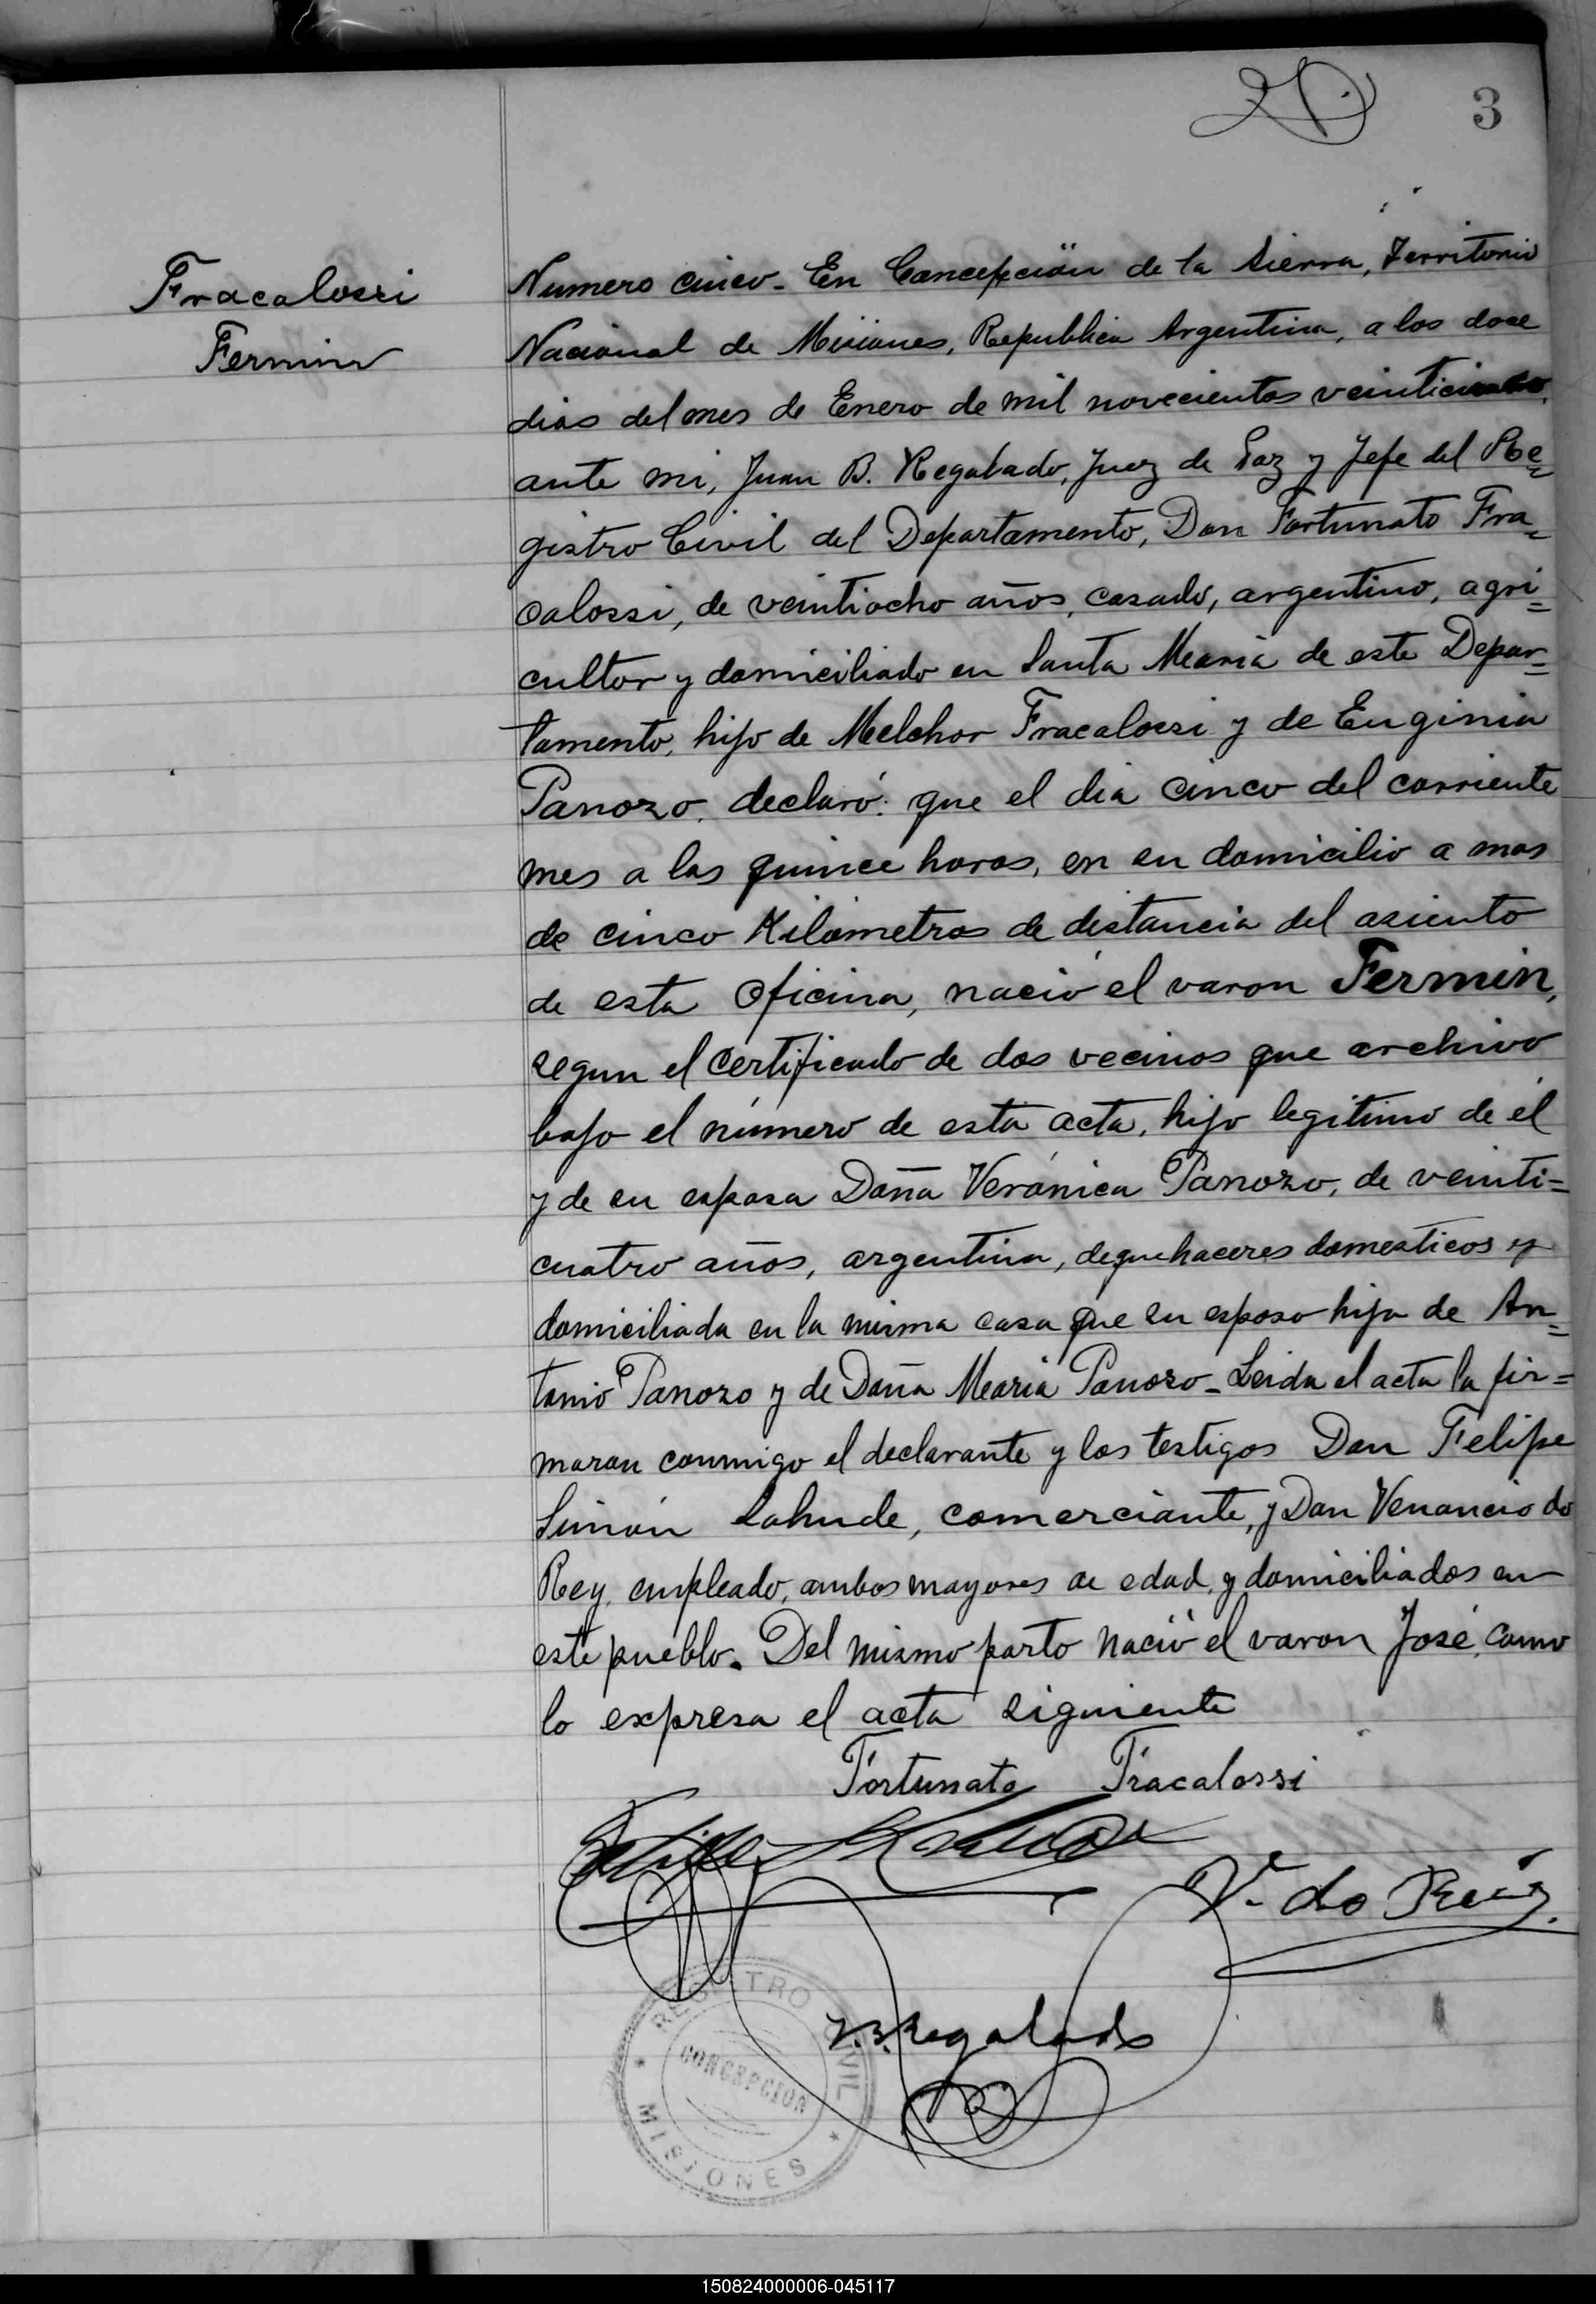 3
Fracalossi
Fermin
Numero cinco - En Concepción de la Sierra, Territorio
Nacional de Misiones, Republica Argentina, a los doce
dias del mes de Enero de mil novecientos
ante mi, Juan B. Regalado, Juez de Paz y Jefe del Re=
gistro Civil del Departamento, Don Fortunato Fra=
calossi, de veintiocho años, casado, argentino, agri=
cultor y domiciliado en Santa Maria de este Depar=
tamento, hijo de Melchor Fracalossi y de Euginia
Panozo, declaró: que el dia cinco del corriente
mes a las quince horas, en su domicilio a mas
de cinco Kilometros de distancia del asiento
de esta Oficina, nació el varon Fermin,
segun el certificado de dos vecinos que archivo
bajo el número de esta acta, hijo legitimo de él
y de su esposa Doña Verónica Panozo, de veinti=
cuatro años, argentina, de quehaceres domesticos y
domiciliada en la misma casa que su esposo hija de An=
tonio Panozo y de Doña Maria Panozo - Leida el acta la fir=
maron conmigo el declarante y los testigos Don Felipe
Simón Lahude, comerciante, y Don Venancio do
Rey, empleado, ambos mayores de edad, y domiciliados en
este pueblo. Del mismo parto nació el varon José, como
lo expresa el acta siguiente
Fortunato Fracalossi
V. do Rey
J.B. Regalado
REGISTRO CIVIL
CONCEPCION
MISIONES
150824000006-045117